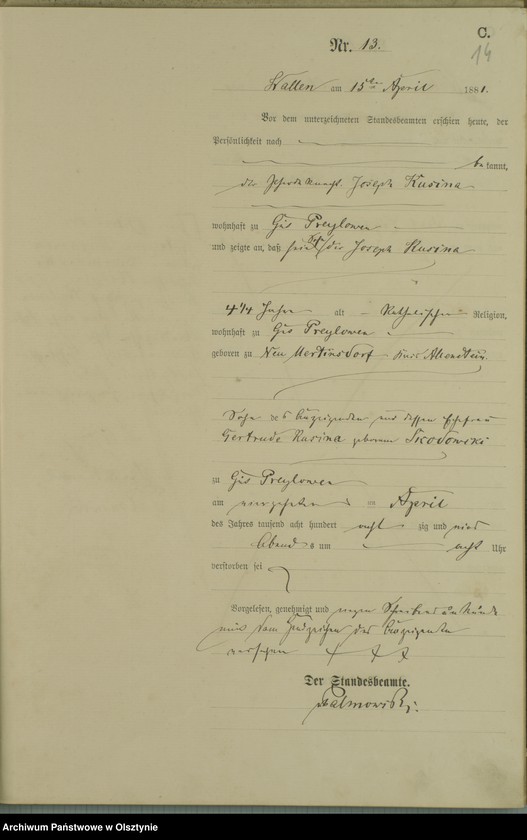 C.
14
Nr. 13.
Wallen am 15ten April 1881.
Vor dem unterzeichneten Standesbeamten erschien heute, der
Persönlichkeit nach
bekannt,
der Pferdeknecht Joseph Kusina
wohnhaft zu Gut Preylowen
und zeigte an, daß sein Sohn der Joseph Kusina
4 1/4 Jahre alt Katholischer Religion,
wohnhaft zu Gut Preylowen
geboren zu Neu Mertinsdorf Kreis Allenstein
Sohn des Anzeigenden und dessen Ehefrau
Gertrude Kusina geborene
zu Gut Preylowen
am vierzehnten April
des Jahres tausend acht hundert acht zig und eins
Abends um acht Uhr
verstorben sei
Vorgelesen, genehmigt und wegen Schreibensunkunde
mit dem Handzeichen des Anzeigenden
versehen + + +
Der Standesbeamte.
Palmowski.
Archiwum Państwowe w Olsztynie